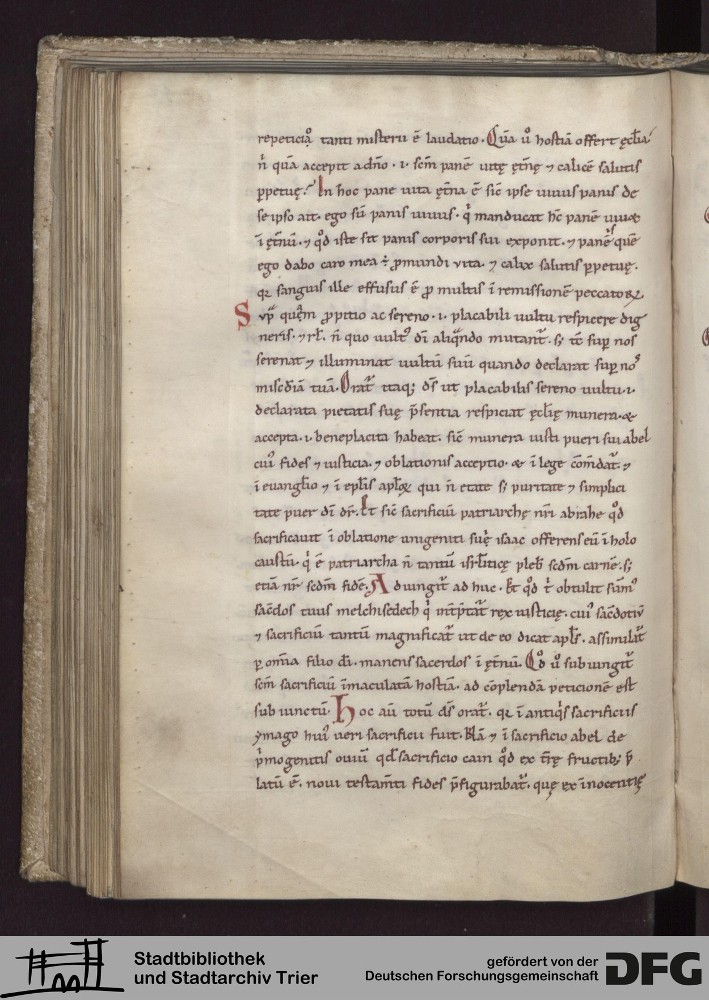 repeticio᷒ tanti misterii ē laudatio. Quā u̾ hostiā offert ęcl̄ia?
n̄ quā accepit a dn̄o .i. sc̄m panē uitę ęt̄nę ⁊ calicē salutis
ꝑpetuę. In hoc pane uita ęt̄na ē sic̄ ipse uiuus panis de
se ipso ait. ego sū panis uiuus. q̇ manducat hc̄ panē uiuet
ī ęt̄nū. ⁊ qd̄ iste sit panis corporis sui exponit. ⁊ panis quē
ego dabo caro mea ē ꝓ mundi vita. ⁊ calix salutis ꝑpetuę.
qr̄ sanguis ille effusus ē ꝓ multis ī remissionē peccatoꝝ.
Supͣ quęm ꝓpitio ac sereno .i. placabili uultu respicere dig
neris. ⁊ rl̄. n̄ quo uult᷒ dī aliqn̄do mutant᷑. sꝫ tc̄ suꝑ nos
serenat ⁊ illuminat uultū suū quando declarat suꝑ no᷒
mis̄c̄diā tuā. Orat᷑ itaqꝫ ds̄ ut placabilis sereno uultu .i.
declarata pietatis suę p̄sentia respiciat ęcl̄ię munera. &
accepta .i. beneplacita habeat. sic̄ munera iusti pueri sui abel
cui᷒ fides ⁊ iusticia. ⁊ oblationis acceptio. & ī lege cōm̄dat᷑. ⁊
ī euangl̄io ⁊ ī epl̄is apl̄oꝝ qui n̄ etate sꝫ puritate ⁊ simplici
tate puer dī dr̄. Et sic̄ sacrificiū patriarchę nr̄i abrahe qd̄
sacrificauit ī oblatione unigeniti suę isaac offerens eū ī holo
caustū. q̇ ē patriarcha n̄ tantū isrl̄iticę pleb̄ scd̄m carnē. sꝫ
etiā nr̄ scd̄m fidē. Adiungit᷑ ad huc. &̄ qd̄ t̄ obtulit sūm᷒
sac̄dos tuus melchisedech q̇ int̄p̄tat᷑ rex iusticię. cui᷒ sac̄dotiū
⁊ sacrificiū tantū magnificat᷑ ut de eo dicat apl̄s. assimulat᷑
ꝑ om̄ia filio dī. manens sacerdos ī ęt̄nū. Qd̄ u̾ subiungit᷑
sc̄m sacrificiū īmaculatā hostiā. ad cōplendā peticionē est
subiunctū. Hoc aū totū ds̄ orat᷑. qr̄ ī antiq̇s sacrificiis
ymago hui᷒ ueri sacrificii fuit. Nā ⁊ ī sacrificio abel de
p̄mogenitis ouiū qd̄ sacrificio cain qd̄ ex t̄rę fructibꝫ p̄
latū ē. noui testam̄ti fides p̄figurabat᷑. quę ex īnocentię
Stadtbibliothek
und Stadtarchiv Trier
gefördert von der
Deutschen Forschungsgemeinschaft
DFG